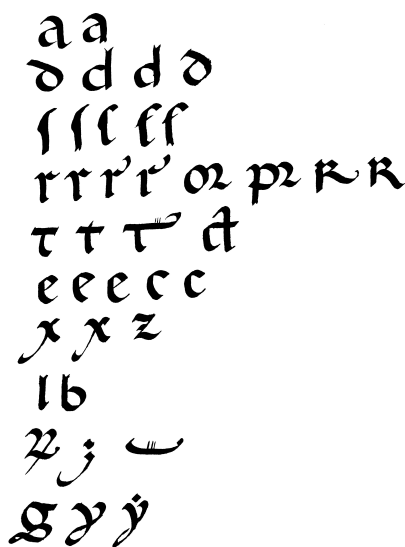 a a
ꝺ d d ꝺ
ſ ſ ſ f f
r r r r oꝛ pꝛ ʀ ʀ
t t t ct
e e e c c
x x z
l b
g y ẏ